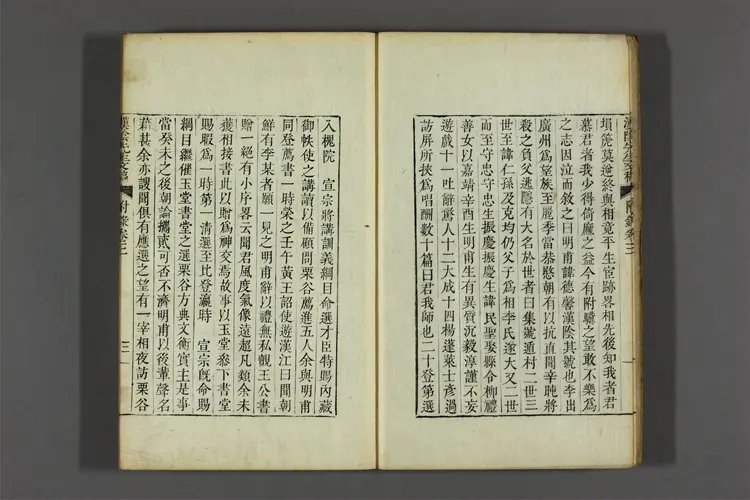 塤篪莫逆終與相竟平生宦跡畧相先後知我者君
慕君者我少得倚廕之益今有附驥之望敢不樂爲
之志因泣而敘之曰明甫諱德馨漢陰其號也李出
廣州爲望族至麗季當恭愍朝有以抗直聞辛旽將
殺之負父逃隱有大名於世者曰集號遁村二世三
世至諱仁孫及克均仍父子爲相李氏遂大又二世
而至守忠守忠生振慶振慶生諱民聖娶縣令柳禮
善女以嘉靖辛酉生明甫生有異質沉毅淳謹不妄
遊戲十一吐辭驚人十二大成十四楊蓬萊士彥過
訪屏所挾爲唱酬數十篇曰君我師也二十登第選
入槐院　宣宗將講訓義綱目命選才臣特賜內藏
御帙使之講讀以備顧問栗谷薦進五人余與明甫
同登薦書一時榮之壬午黃王詔使遊漢江曰聞朝
鮮有李某者願一見之明甫辭以禮無私覿王公書
贈一絕有小序畧云聞君風度氣像遠超凡類余未
獲相接書此以贈爲神交焉故事以玉堂參下書堂
賜暇爲一時第一清選至比登瀛時　宣宗旣命賜
綱目繼催玉堂書堂之選栗谷方典文衡實主是事
當癸未之後朝論攜貳可否不濟明甫以後輩聲名
藉甚余亦謏聞俱有應選之望有一宰相夜訪栗谷
漢陰先生文稿
附錄卷二
三